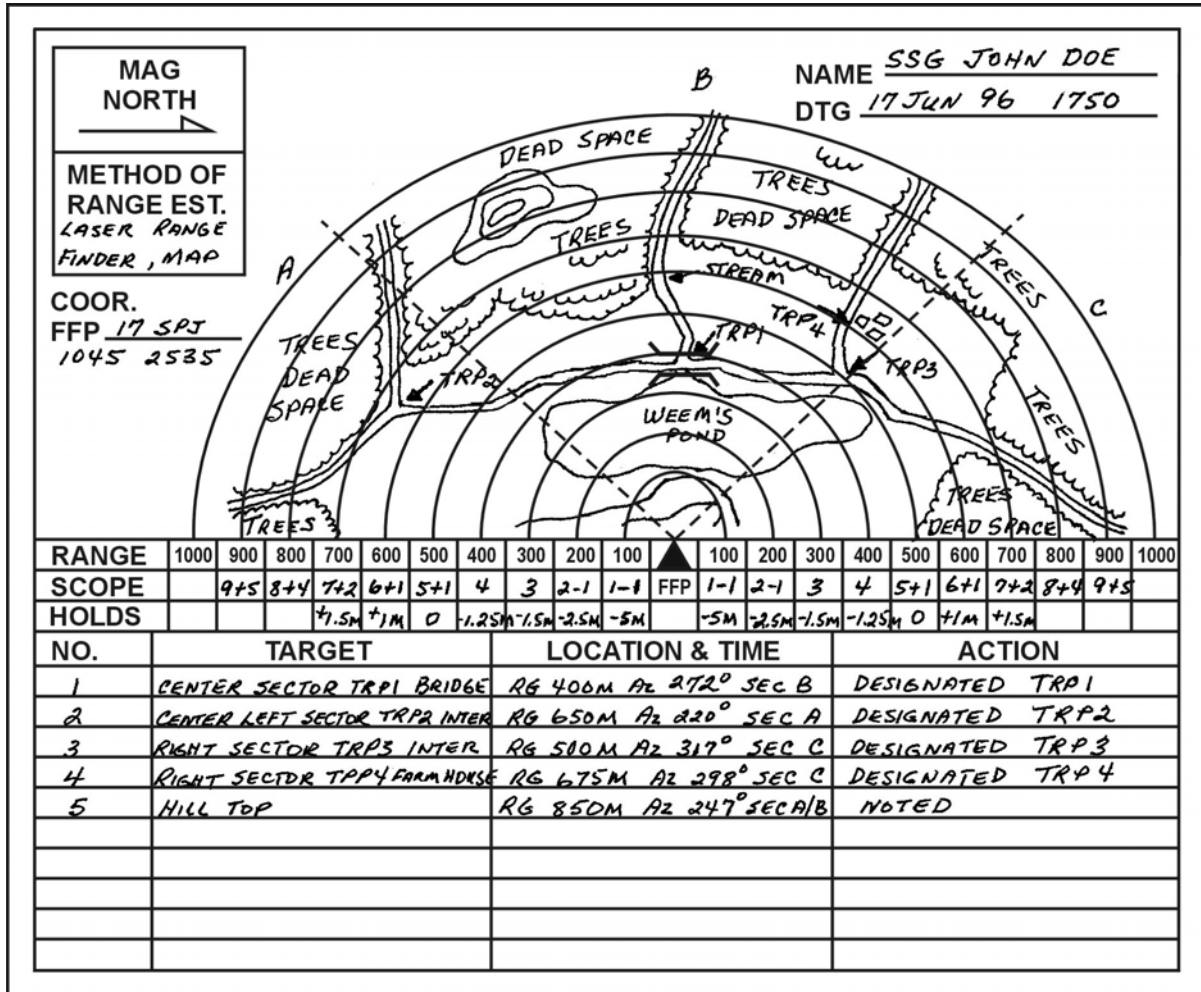 MAG
NORTH
METHOD OF
RANGE EST.
LASER RANGE
FINDER, MAP
COOR.
FFP 17 SPJ
1045 2535
NAME SSG JOHN DOE
DTG 17 JUN 96 1750
A
B
C
DEAD SPACE
TREES
TREES
DEAD SPACE
TREES
STREAM
TRP4
TRP1
TRP3
TRP2
TREES
DEAD
SPACE
WEEM'S
POND
TREES
TREES
TREES
DEAD SPACE
TREES
RANGE 1000 900 800 700 600 500 400 300 200 100 100 200 300 400 500 600 700 800 900 1000
SCOPE 9+5 8+4 7+2 6+1 5+1 4 3 2-1 1-1 FFP 1-1 2-1 3 4 5+1 6+1 7+2 8+4 9+5
HOLDS +1.5M +1M 0 -1.25M -1.5M -2.5M -5M -5M -2.5M -1.5M -1.25M 0 +1M +1.5M
NO. TARGET LOCATION & TIME ACTION
1 CENTER SECTOR TRP1 BRIDGE RG 400M AZ 272° SEC B DESIGNATED TRP1
2 CENTER LEFT SECTOR TRP2 INTER RG 650M AZ 220° SEC A DESIGNATED TRP2
3 RIGHT SECTOR TRP3 INTER RG 500M AZ 317° SEC C DESIGNATED TRP3
4 RIGHT SECTOR TPP4 FARM HOUSE RG 675M AZ 298° SEC C DESIGNATED TRP4
5 HILL TOP RG 850M AZ 247° SEC A/B NOTED